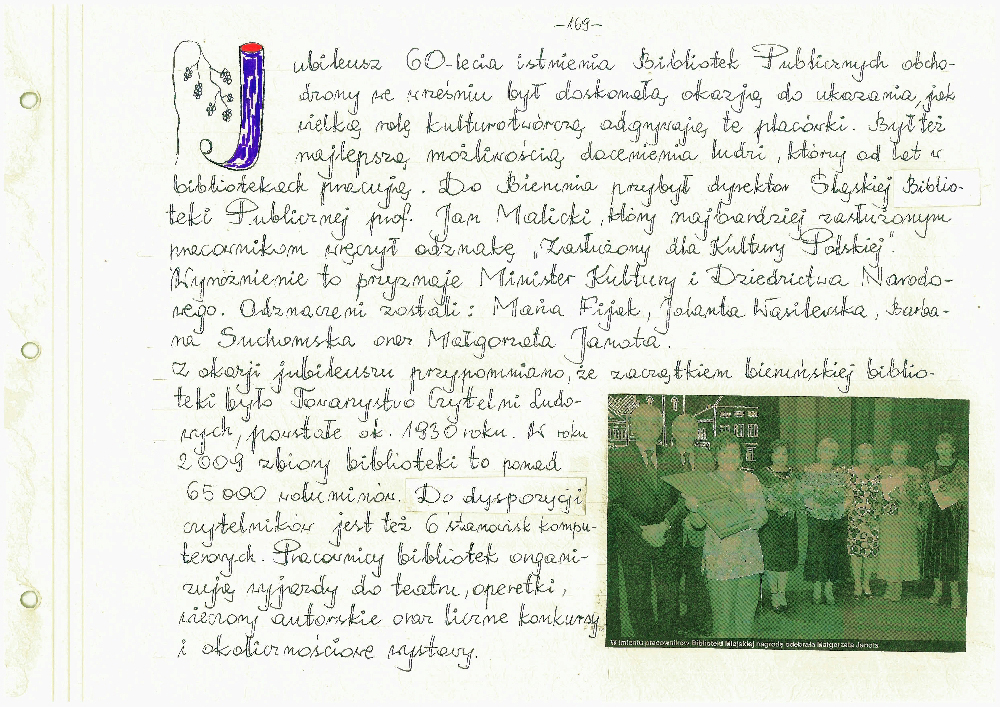 -169-
Jubileusz 60-lecia istnienia Bibliotek Publicznych obcho-
dzony we wrześniu był doskonałą okazją do ukazania, jak
wielką rolę kulturotwórczą odgrywają te placówki. Był też
najlepszą możliwością docenienia ludzi, którzy od lat w
bibliotekach pracują. Do Bierunia przybył dyrektor Śląskiej Biblio-
teki Publicznej prof. Jan Malicki, który najbardziej zasłużonym
pracownikom wręczył odznakę „Zasłużony dla Kultury Polskiej".
Wyróżnienie to przyznaje Minister Kultury i Dziedzictwa Narodo-
wego. Odznaczeni zostali: Maria Fijak, Jolanta Wasilewska, Barba-
ra Suchomska oraz Małgorzata Janota.
Z okazji jubileuszu przypomniano, że zaczątkiem bieruńskiej biblio-
teki było Towarzystwo Czytelni Ludo-
wych, powstałe ok. 1930 roku. W roku
2009 zbiory biblioteki to ponad
65 000 woluminów. Do dyspozycji
czytelników jest też 6 stanowisk kompu-
terowych. Pracownicy bibliotek organi-
zują wyjazdy do teatru, operetki,
wieczory autorskie oraz liczne konkursy
i okolicznościowe wystawy.
W imieniu pracowników Biblioteki Miejskiej nagrodę odebrała Małgorzata Janota